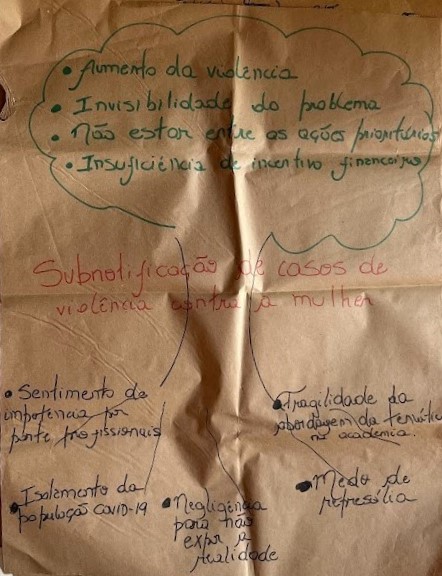 • Aumento da violência
• Invisibilidade do problema
• Não estar entre as ações prioritárias
• Insuficiência de incentivo financeiro
Subnotificação de casos de
violência contra a mulher
• Sentimento de
impotência por
parte profissionais
• Fragilidade da
abordagem da temática
na academia.
• Isolamento da
população COVID-19
• Negligência
para não
expor a
realidade
• Medo de
represália